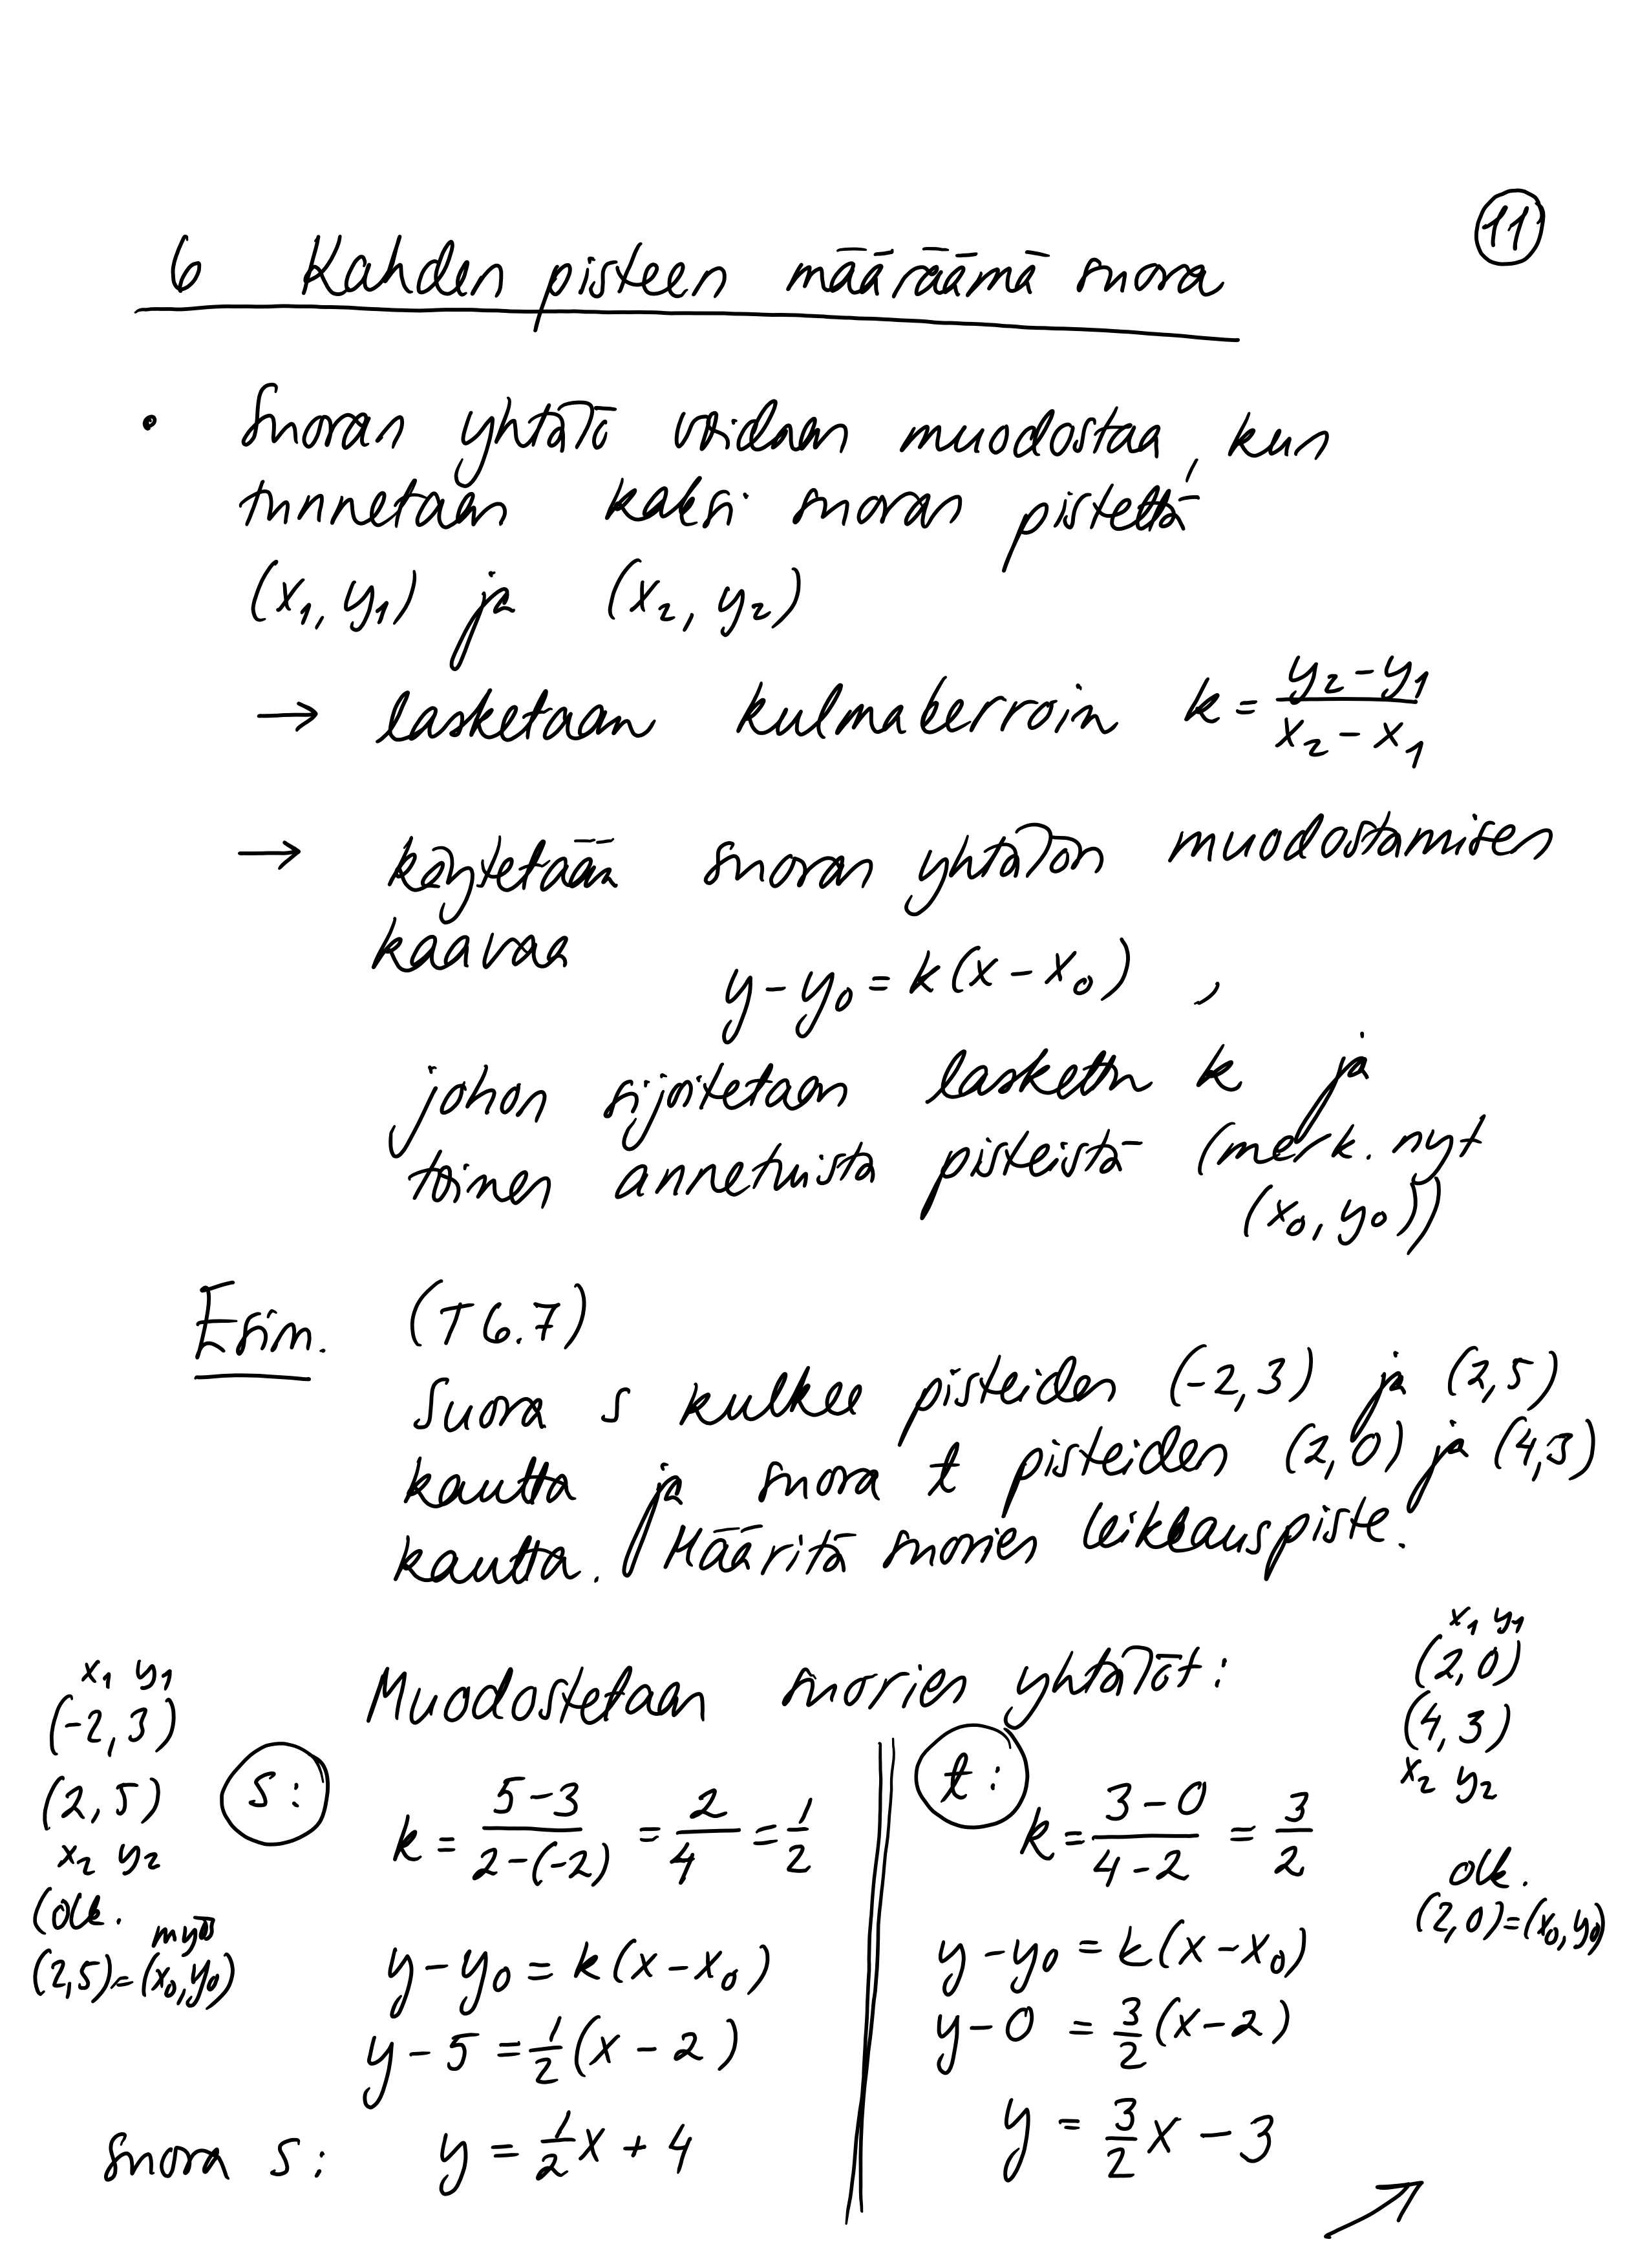 11
6 Kahden pisteen määräämä suora
• Suoran yhtälö voidaan muodostaa, kun
tunnetaan kaksi suoran pistettä
(x₁, y₁) ja (x₂, y₂)
→ lasketaan kulmakerroin k = (y₂ - y₁)/(x₂ - x₁)
→ käytetään suoran yhtälön muodostamisen
kaavaa
y - y₀ = k(x - x₀) ,
johon sijoitetaan laskettu k ja
toinen annetuista pisteistä (merk. nyt
(x₀, y₀))
Esim. (T 6.7)
Suora s kulkee pisteiden (-2, 3) ja (2, 5)
kautta ja suora t pisteiden (2, 0) ja (4, 3)
kautta. Määritä suorien leikkauspiste.
Muodostetaan suorien yhtälöt:
x₁ y₁
(-2, 3)
(2, 5)
x₂ y₂
(olk. myös
(2, 5) = (x₀, y₀)
s:
k = (5 - 3)/(2 - (-2)) = 2/4 = 1/2
y - y₀ = k(x - x₀)
y - 5 = 1/2 (x - 2)
suora s: y = 1/2 x + 4
t:
k = (3 - 0)/(4 - 2) = 3/2
y - y₀ = k(x - x₀)
y - 0 = 3/2 (x - 2)
y = 3/2 x - 3
x₁ y₁
(2, 0)
(4, 3)
x₂ y₂
olk.
(2, 0) = (x₀, y₀)